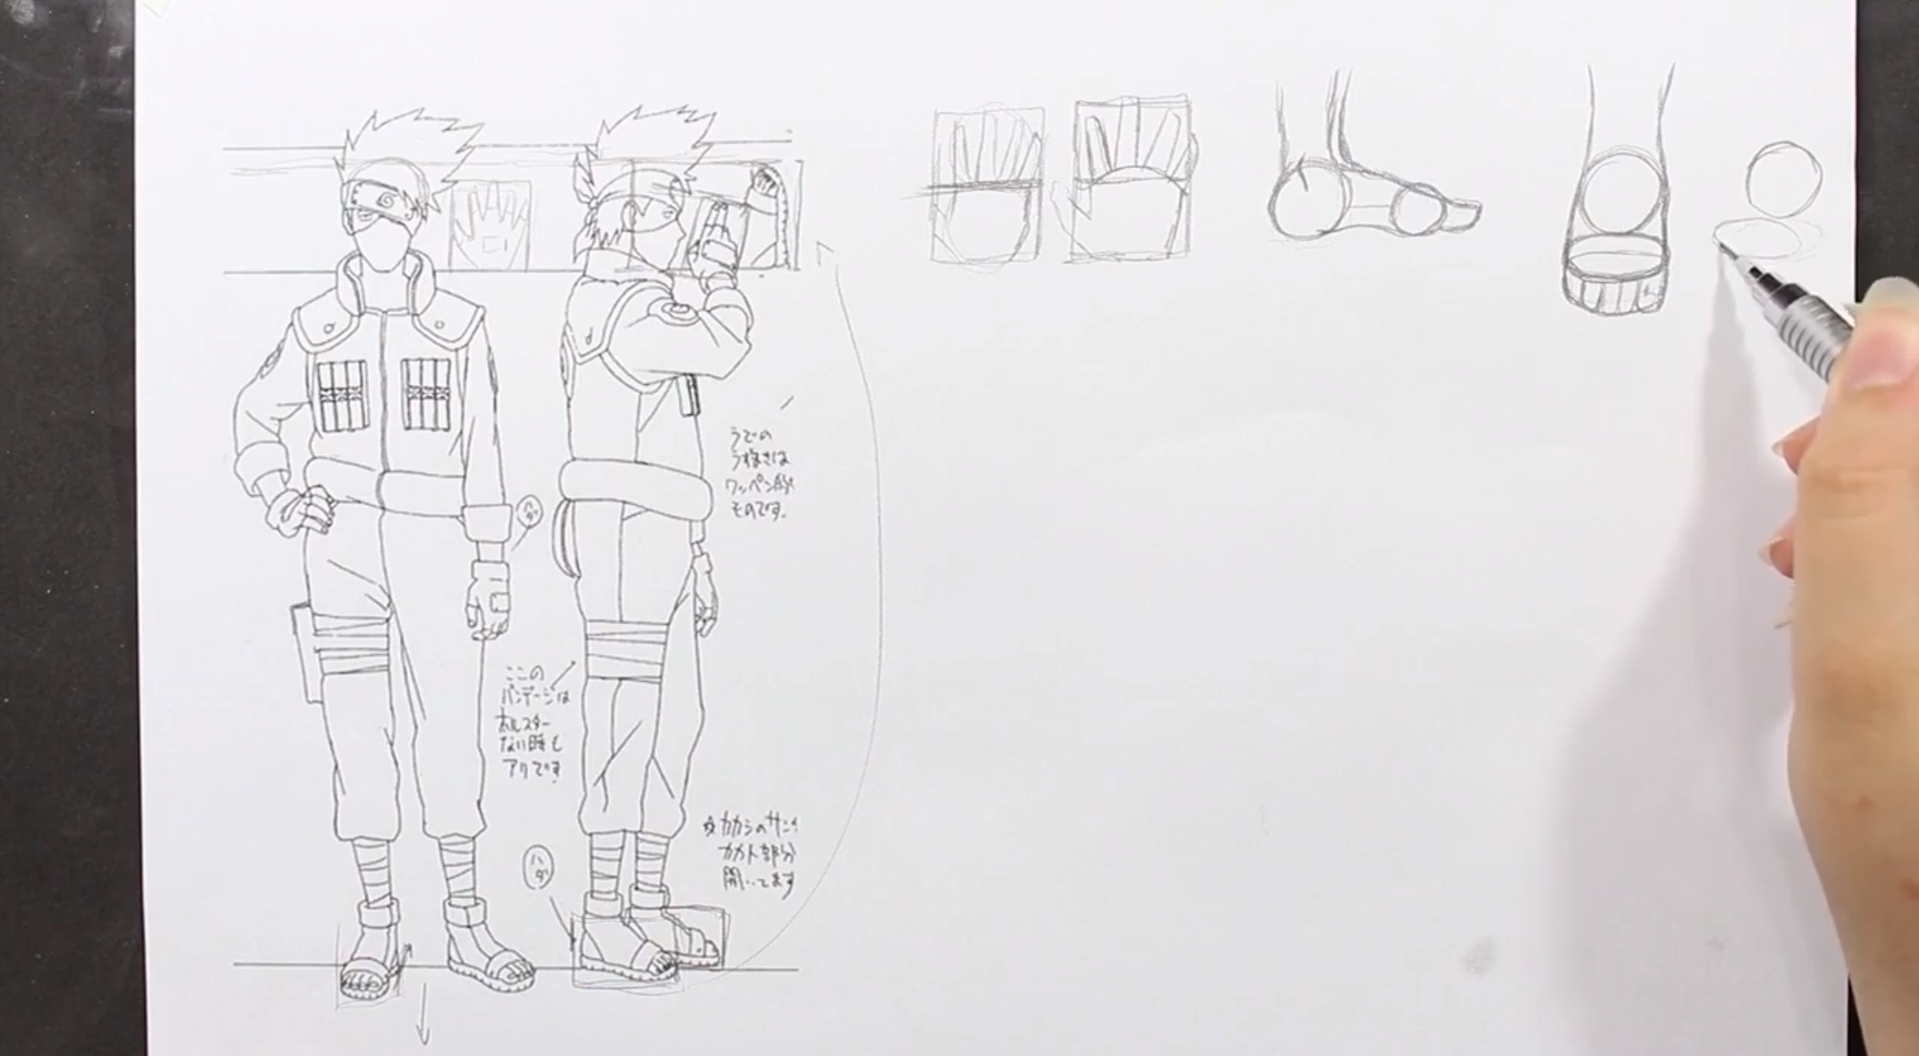 うでの
うずまきは
ワッペン的
ものです。
ハダ
ここの
バンデージは
ホルスター
ない時も
アリです
ハダ
カカシのサン
カカト部分
開いてます